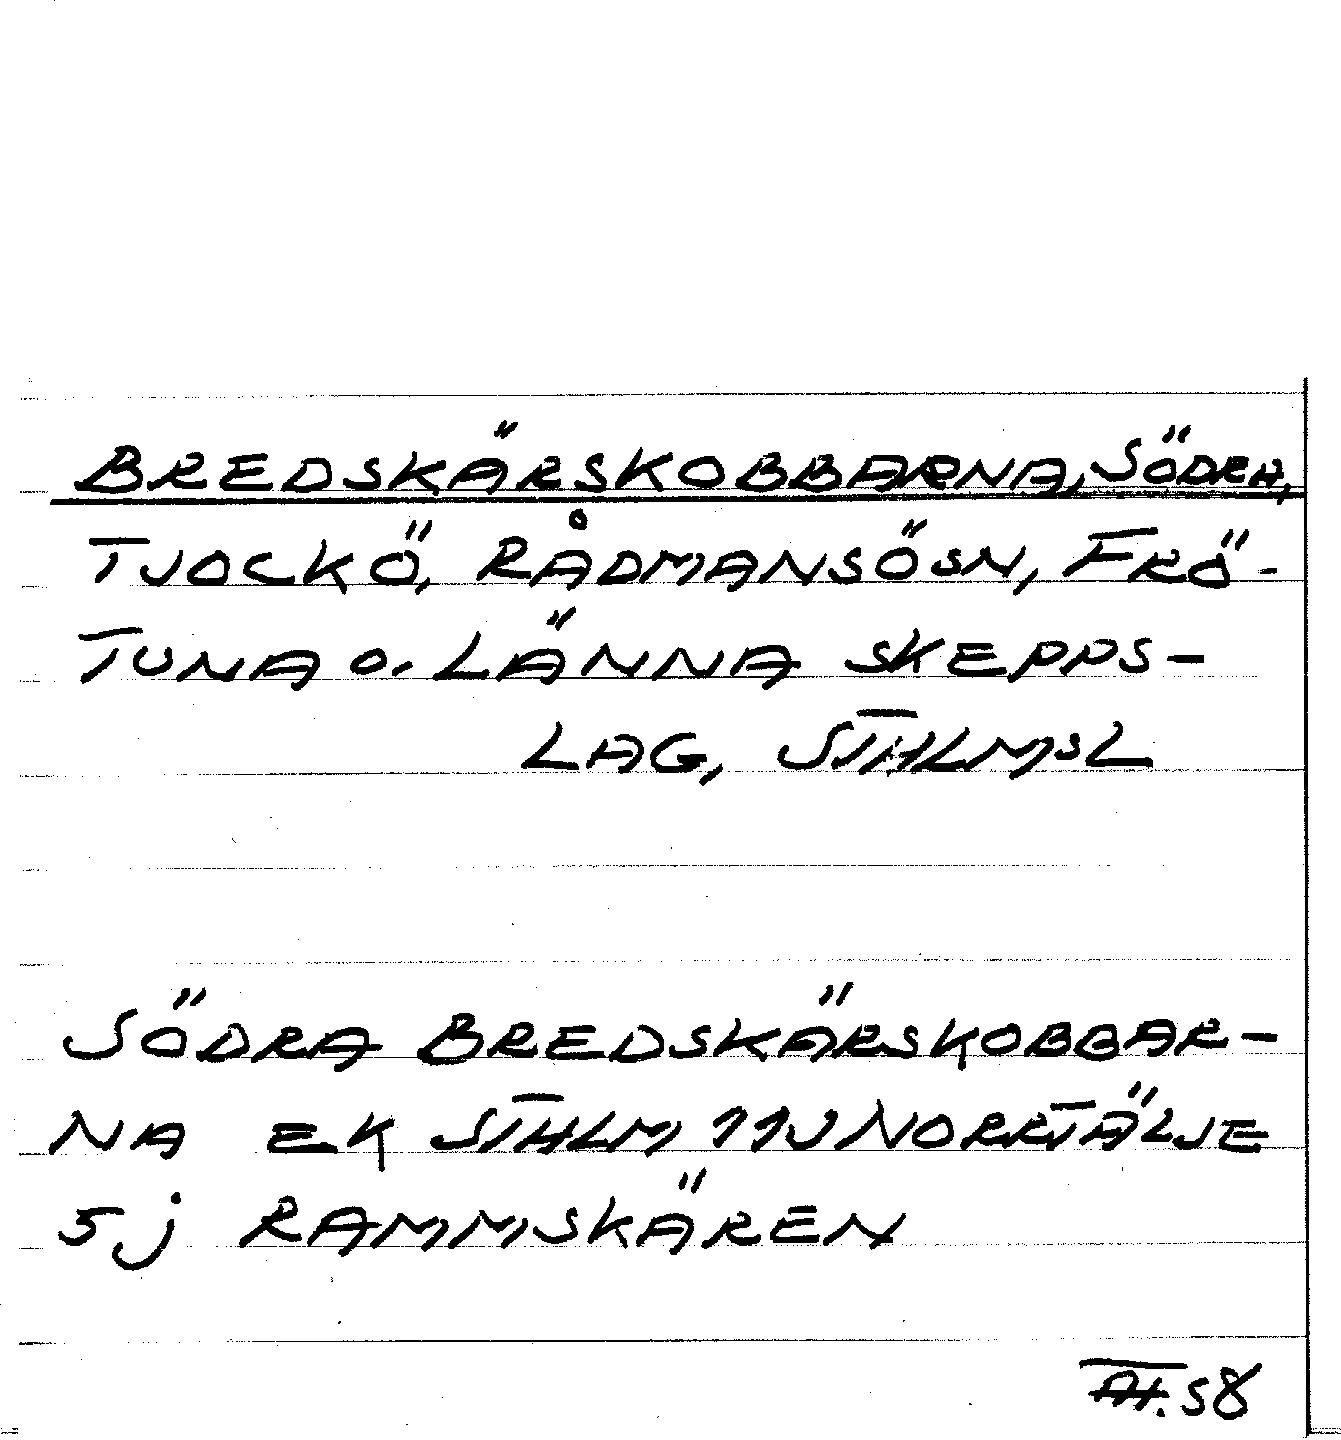 BREDSKÄRSKOBBARNA, SÖDRA,
TJOCKÖ, RÅDMANSÖSN, FRÖ-
TUNA O. LÄNNA SKEPPS-
LAG, STHLMSL
SÖDRA BREDSKÄRSKOBBAR-
NA EK STHLM 11J NORRTÄLJE
5j RAMMSKÄREN
58